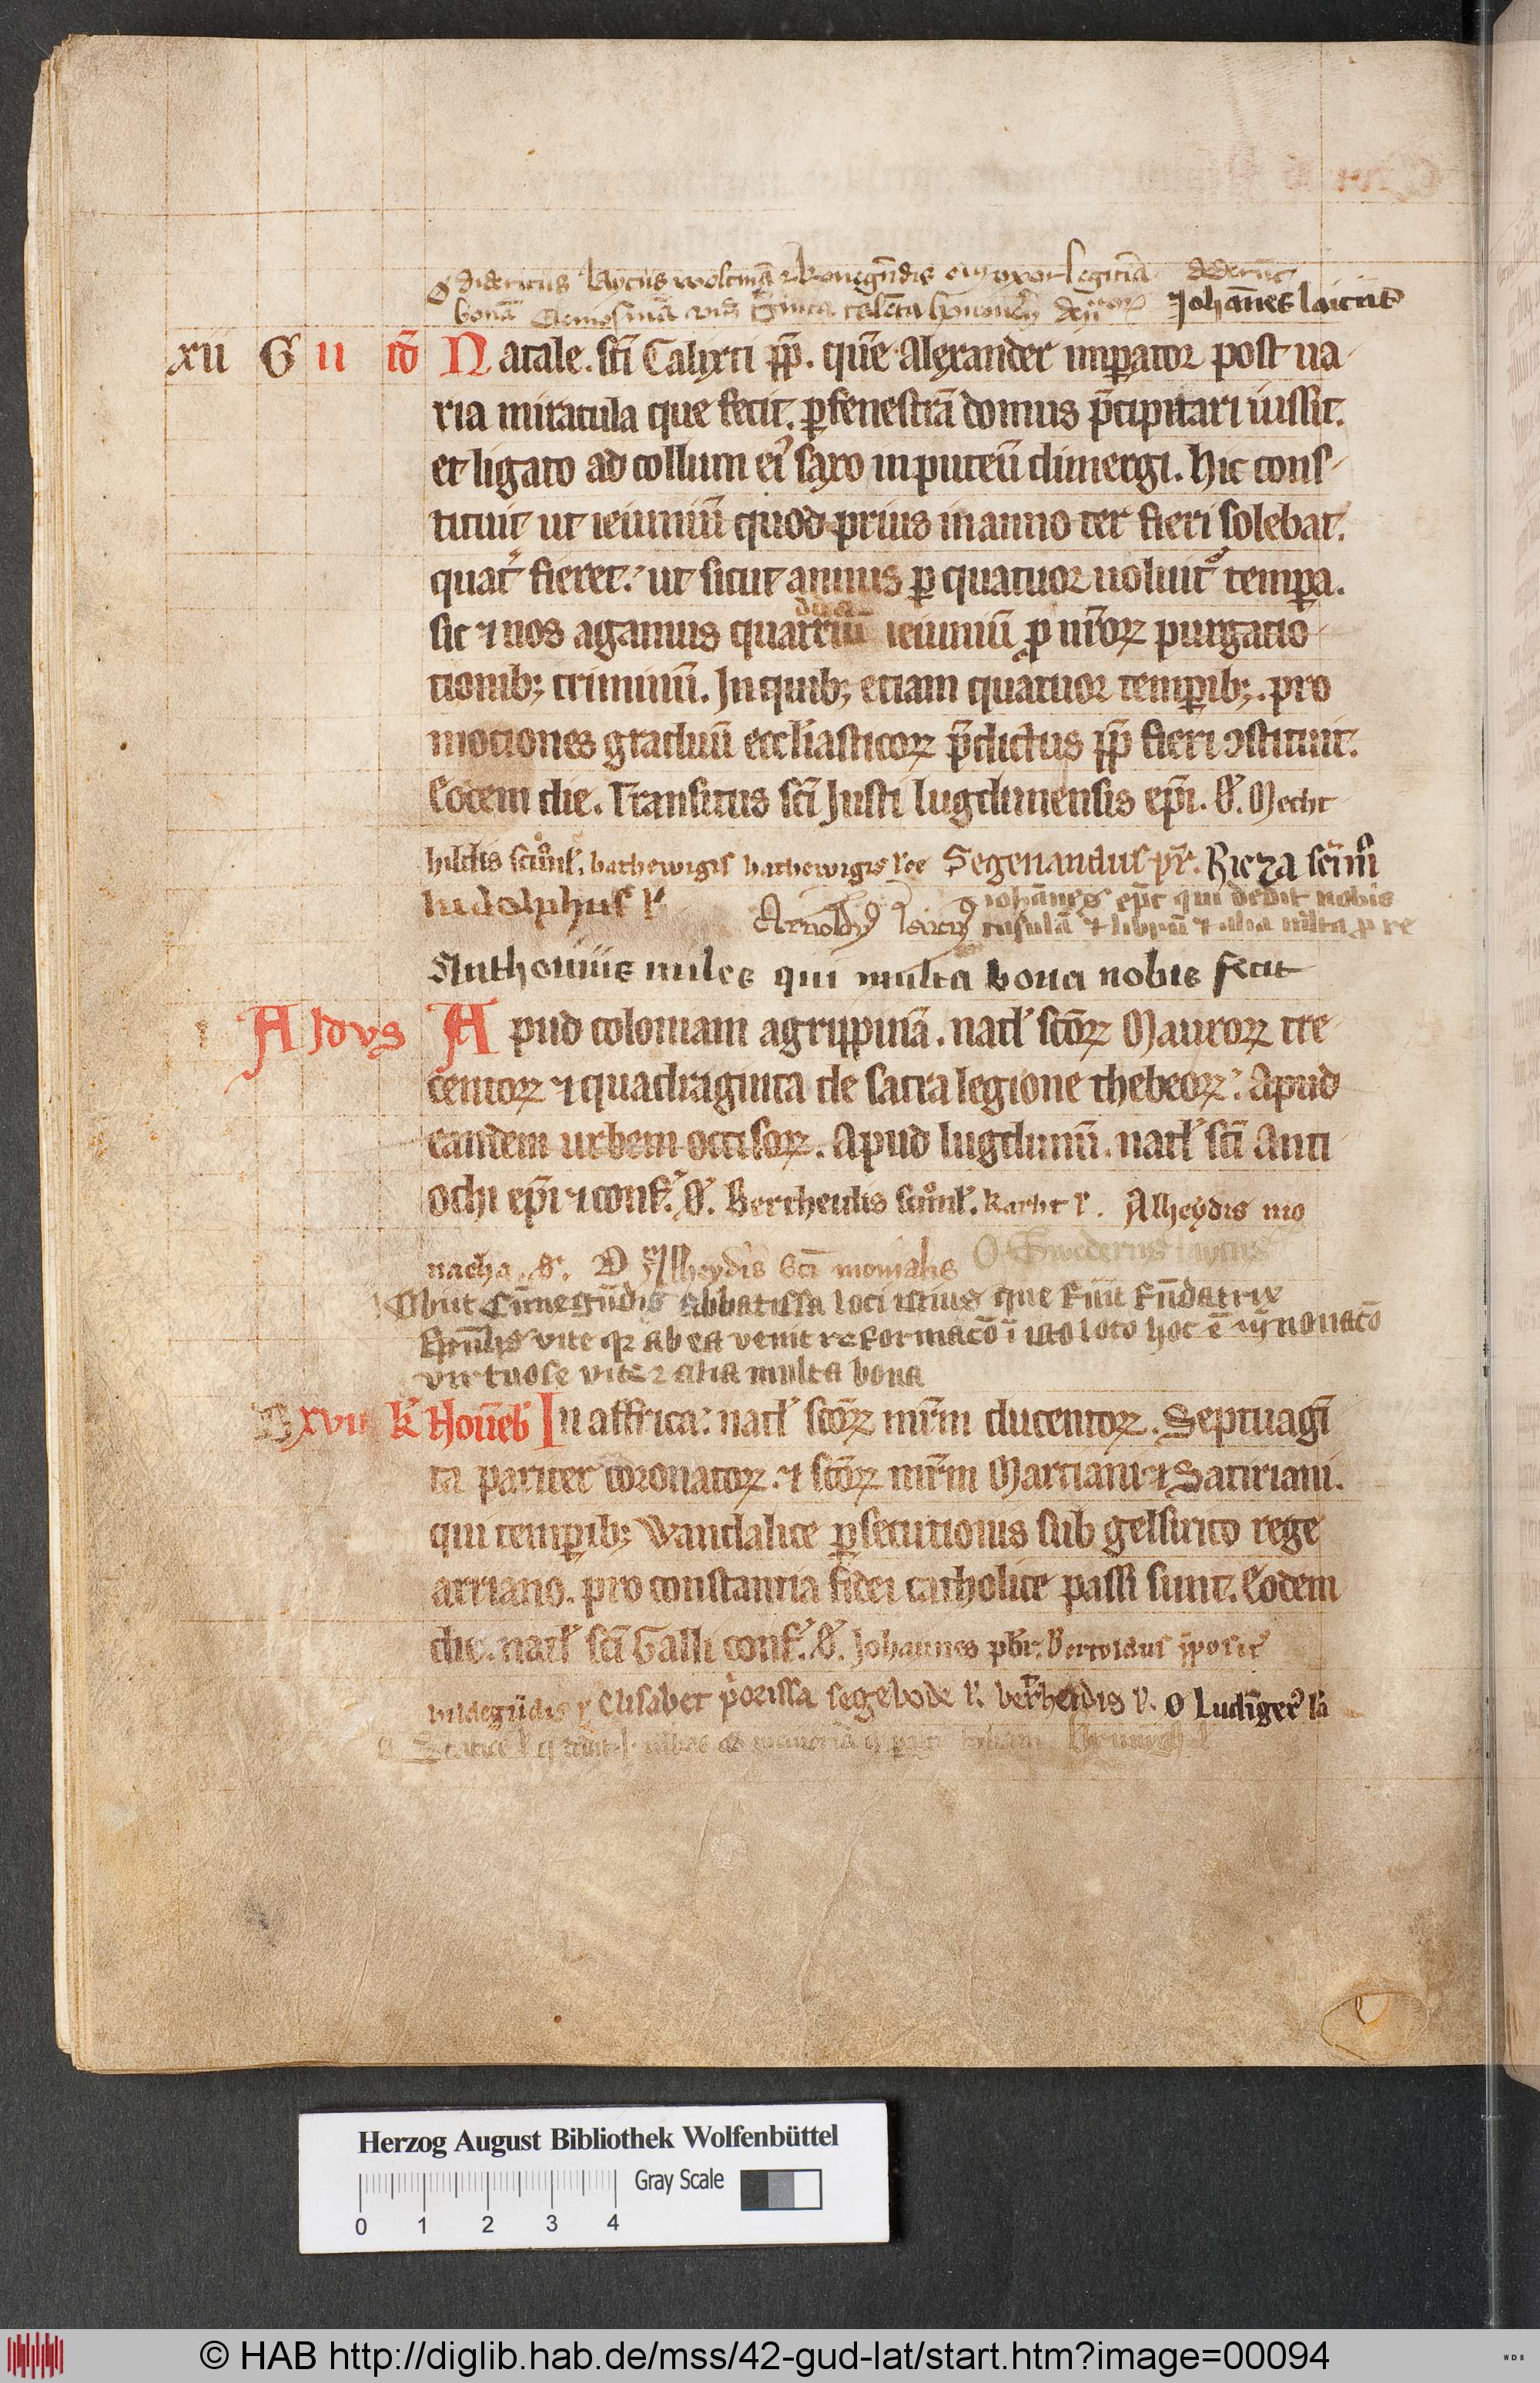 O didericus laycus woltmā ⁊ konegūdis eiꝰ uxor legitiā dederūt
bonā elemosinā Johānes laicus
xii G ii id Natale. sc̄i Calixti pp̄. quē Alexander imꝑator post ua
ria miracula que fecit. ꝑ fenestrā domus p̄cipitari iussit.
et ligato ad collum eiꝰ saxo in puteū dimergi. Hic cons
tituit ut ieiuniū quod prius in anno ter fieri solebat.
quat̉ fieret. ut sicut annus ꝑ quatuor uoluit᷑ temꝑa.
sic ⁊ nos agamus quarriū ieiuniū ꝓ nr̄oꝝ purgatio
tionib; criminū. In quib; etiam quatuor temꝑib;. pro
motiones graduū eccl̓iasticoꝝ p̄dictus pp̄ fieri ɔstituit.
Eodem die. Transitus sc̄i Justi lugdunensis ep̄i. O᷑. Mecht
hildis scīmīl̓. hathewigis hathewigis l̓ce Segenandus pr̄. Ricza scīm̄
ludolphus l̓ Arnoldꝰ laicꝰ iohānes ep̄c qui dedit nobis
casulā ⁊ librū ⁊ alia m̄lta ꝓ re
Anthonius miles qui multa bona nobis fecit
A Idvs Apud coloniam agrippinā. natl̓ sc̄oꝝ Mauroꝝ tre
centoꝝ ⁊ quadraginta de sacra legione thebeoꝝ. Apud
eandem urbem occisoꝝ. Apud lugdunū. natl̓ sc̄i Anti
ochi ep̄i ⁊ conf̓. O᷑. Bertheidis scīmīl̓. l̓. Alheydis mo
nacha. O᷑. Alheydis sc̄i monialis O Swederus laycus
Obiit Cūnegūdis abbatissa loci istius que fuit fūdatrix
vite qꝛ ab ea venit reformacō ī isto loco hoc ē
virtuose vite ⁊ alia multa bona
B xvii k̓ Nouēb̓ In affrica. natl̓ sc̄oꝝ mr̄m ducentoꝝ. Septuagī
ta pariter coronatoꝝ. ⁊ sc̄oꝝ mr̄m Martiani ⁊ Satiriani.
qui temꝑib; Wandalice ꝑsecutionis sub gelsirico rege
arriano. pro constantia fidei catholice passi sunt. Eodem
die. natl̓ sc̄i Galli conf̓. O᷑. Johannes pb̄r. Bertoldus
hildegūdis l̓ Elisabet p̓orissa segebode l̓. berherdis l̓. O Ludīgerꝰ la
Herzog August Bibliothek Wolfenbüttel
Gray Scale
0 1 2 3 4
© HAB http://diglib.hab.de/mss/42-gud-lat/start.htm?image=00094
WDB